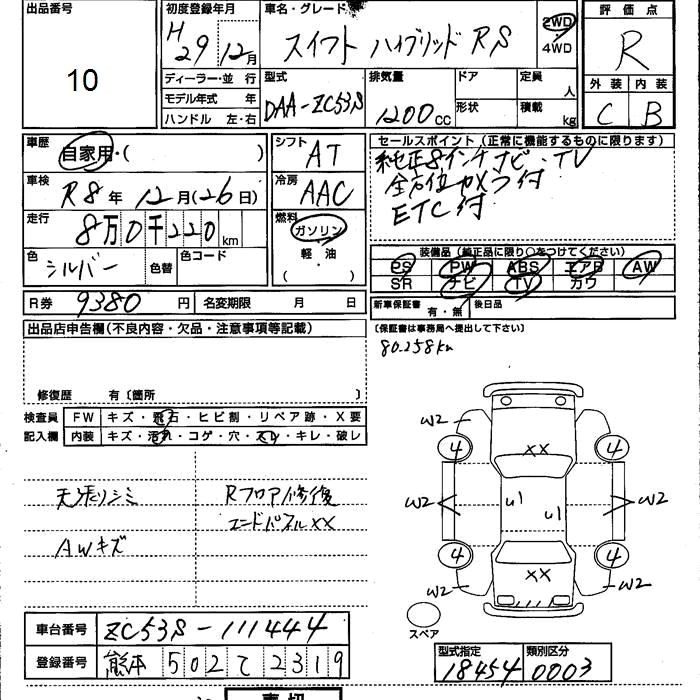 出品番号
10
初度登録年月
H29 12月
車名・グレード
スイフト ハイブリッド RS
2WD
・
4WD
評価点
R
外装 内装
C B
ディーラー・並 行
モデル年式 年
ハンドル 左・右
型式
DAA-ZC53S
排気量
1200cc
ドア
形状
定員
人
積載
kg
車歴
自家用・( )
車検
R8年 12月(26日)
走行
8万0千220km
色
シルバー
色替
色コード
シフト
AT
冷房
AAC
燃料
ガソリン
軽・油
( )
セールスポイント(正常に機能するものに限ります)
純正8インチナビ・TV
全方位カメラ付
ETC付
装備品(純正品に限り○をつけてください)
PS PW ABS エアB AW
SR ナビ TV カワ
R券 9380円 名変期限 月 日
新車保証書
有・無
後日品
(保証書は事務局へ提出して下さい)
80.258km
出品店申告欄(不良内容・欠品・注意事項等記載)
修復歴 有〔箇所 〕
検査員
記入欄
FW キズ・飛石・ヒビ割・リペア跡・X要
内装 キズ・汚れ・コゲ・穴・スレ・キレ・破レ
天張リシミ
AWキズ
Rフロア修復
エンドパネルXX
W2 W2
4 XX 4
W2 U1 U1 W2
4 XX 4
W2 W2
スペア
車台番号 ZC53S-111444
登録番号 熊本 502 て 2319
型式指定 類別区分
18454 0003